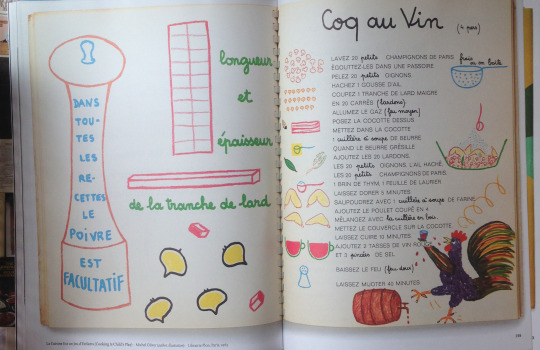 DANS
TOU-
TES
LES
RE-
CETTES
LE
POIVRE
EST
FACULTATIF
longueur
et
épaisseur
de la tranche de lard
Coq au Vin (4 pers)
LAVEZ 20 petits CHAMPIGNONS DE PARIS frais ou en boîte
ÉGOUTTEZ-LES DANS UNE PASSOIRE
PELEZ 20 petits OIGNONS
HACHEZ 1 GOUSSE D'AIL
COUPEZ 1 TRANCHE DE LARD MAIGRE
EN 20 CARRÉS (lardons)
ALLUMEZ LE GAZ (feu moyen)
POSEZ LA COCOTTE DESSUS
METTEZ DANS LA COCOTTE
1 cuillère à soupe DE BEURRE
QUAND LE BEURRE GRÉSILLE
AJOUTEZ LES 20 LARDONS,
LES 20 petits OIGNONS, L'AIL HACHÉ
LES 20 petits CHAMPIGNONS DE PARIS,
1 BRIN DE THYM, 1 FEUILLE DE LAURIER
LAISSEZ DORER 5 MINUTES
SAUPOUDREZ AVEC 1 cuillère à soupe DE FARINE
AJOUTEZ LE POULET COUPÉ EN 4
MÉLANGEZ AVEC la cuillère en bois.
METTEZ LE COUVERCLE SUR LA COCOTTE
LAISSEZ CUIRE 10 MINUTES
AJOUTEZ 2 TASSES DE VIN ROUGE
ET 3 pincées DE SEL
BAISSEZ LE FEU (feu doux)
LAISSEZ MIJOTER 40 MINUTES